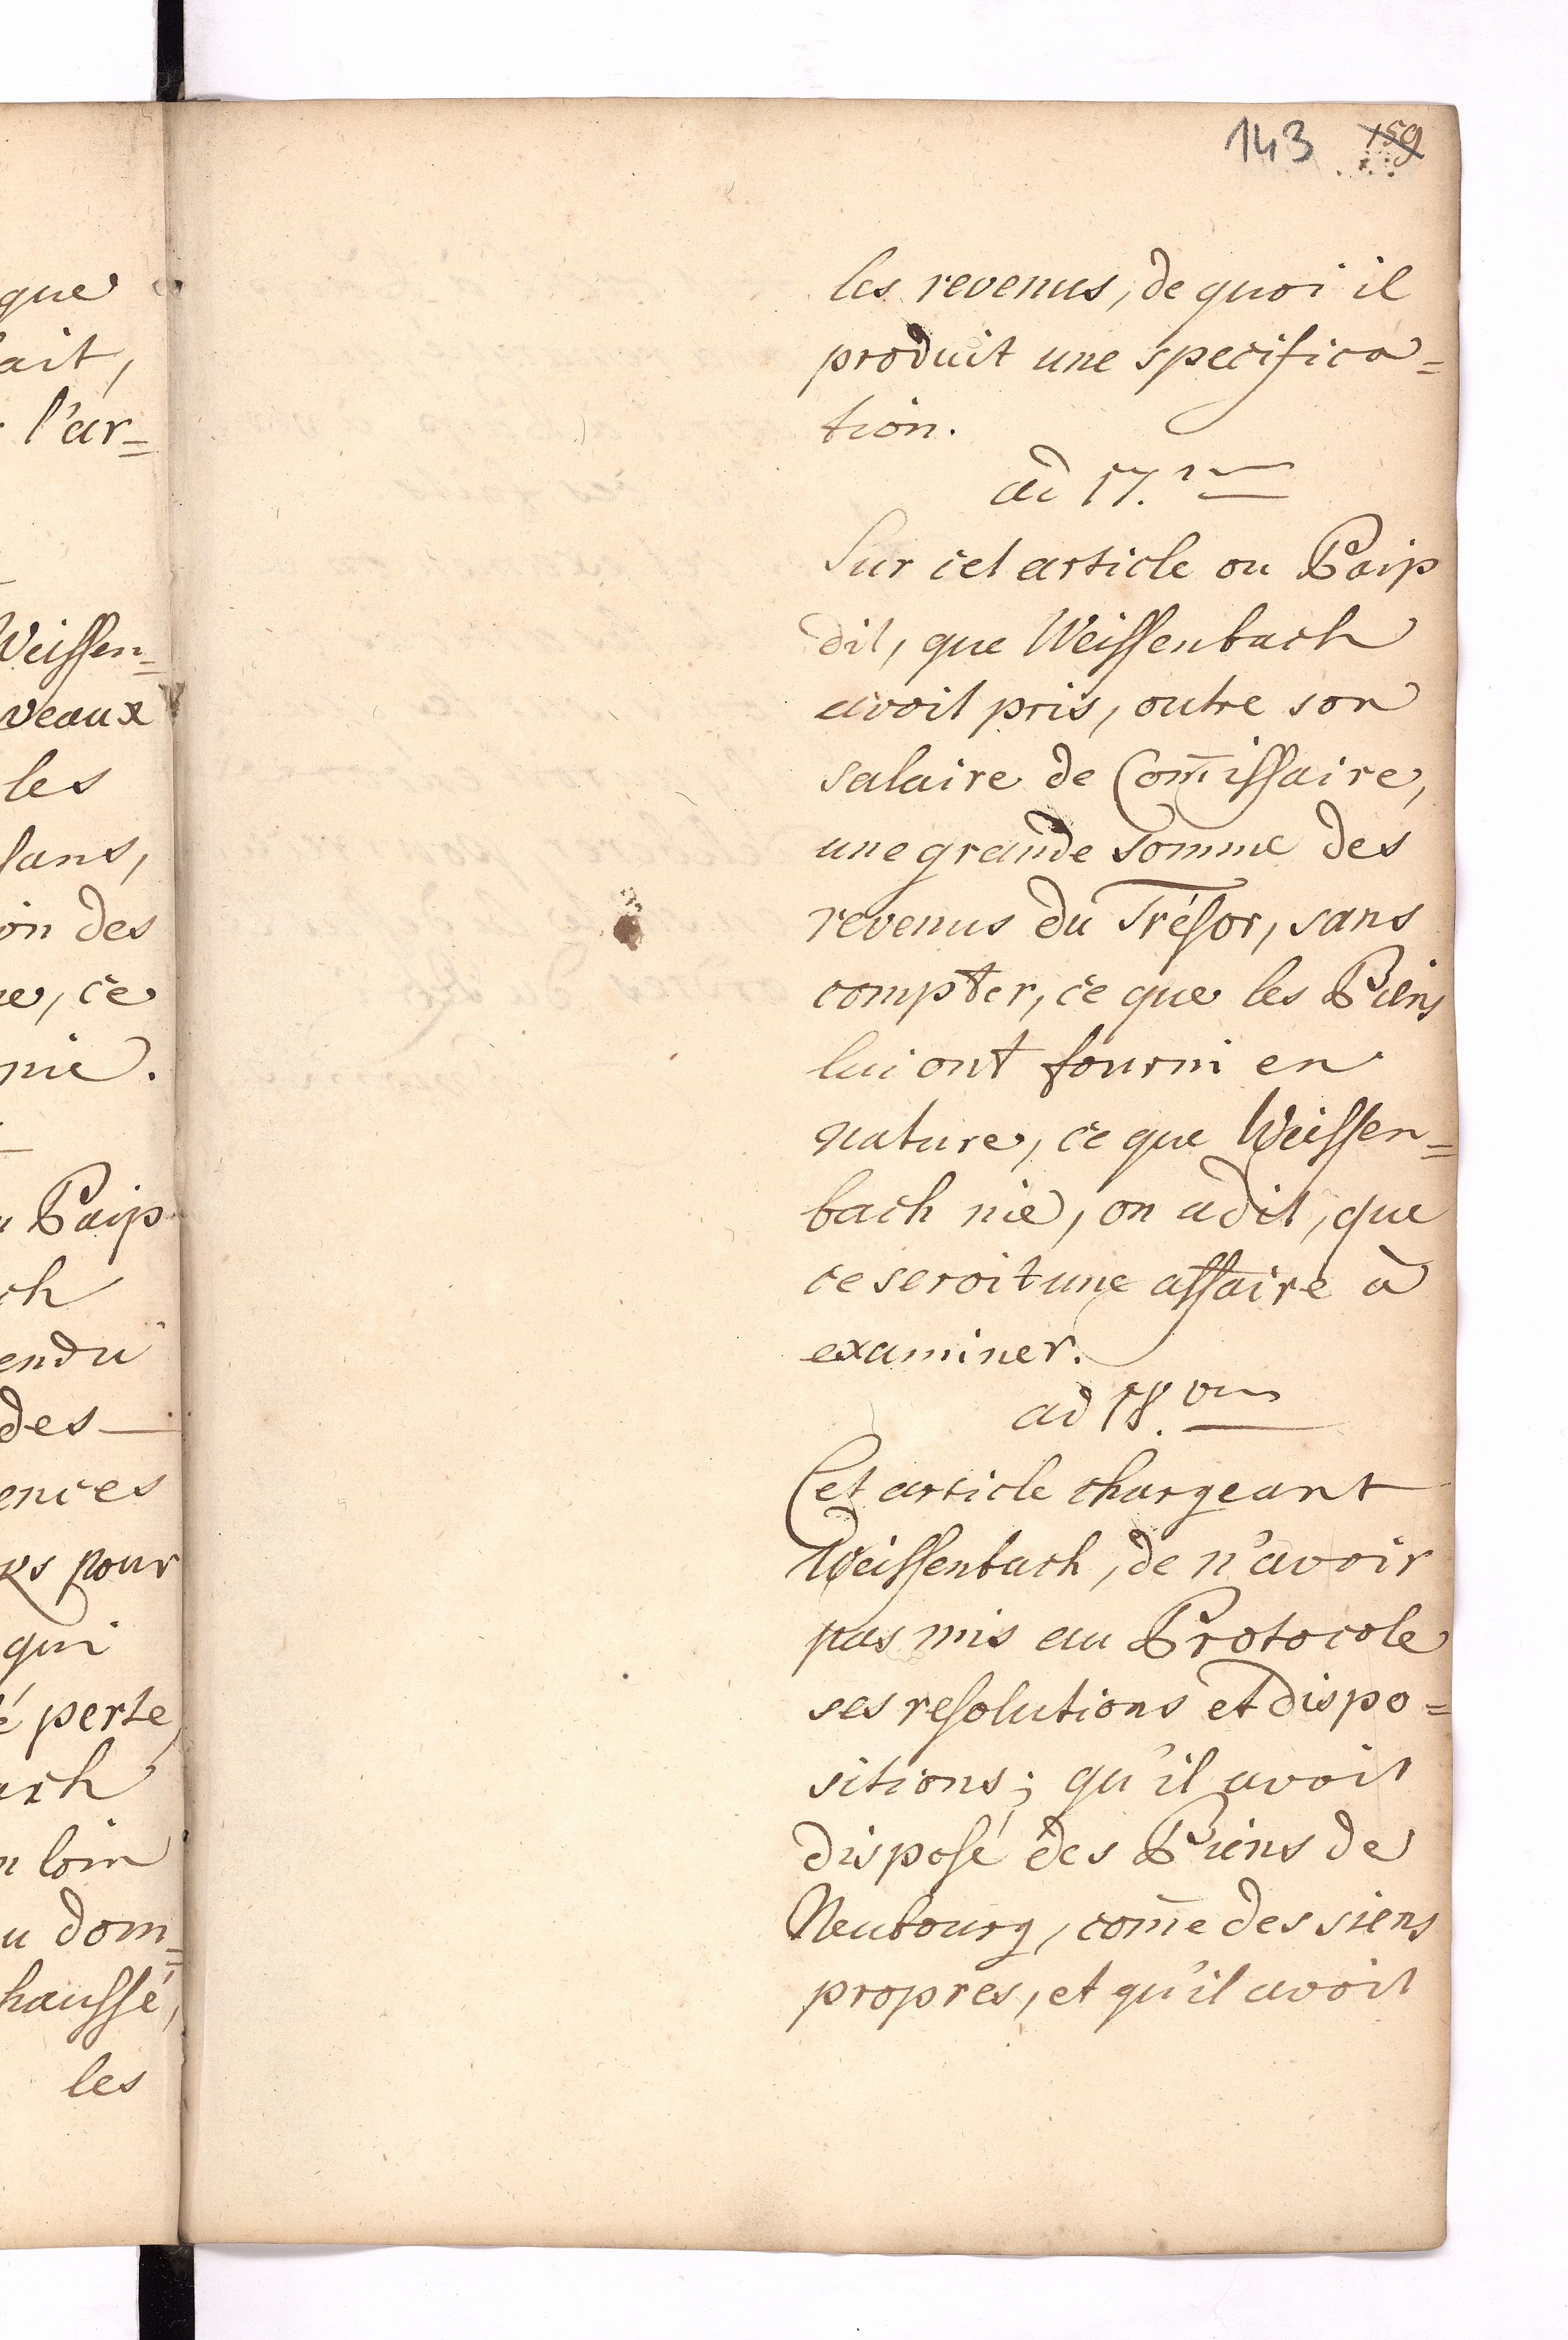 143 159
les revenus, de quoi il
produit une specifica=
tion.
ad 17.
Sur cet article ou Paip
dit, que Weissenbach
avoit pris, outre son
salaire de Com̄issaire,
une grande somme des
revenus du Trésor, sans
compter, ce que les Biens
lui ont fourni en
nature, ce que Weissen=
bach nie, on a dit, que
ce seroit une affaire à
examiner.
ad 18.vum
Cet article chargeant
Weissenbach, de n'avoir
pas mis au Protocole
ses resolutions et dispo=
sitions; qu'il avoit
disposé des Biens de
Neubourg, com̄e des siens
propres, et qu'il avoit
que
ait,
l'ar=
Weissen=
veaux
les
sans,
on des
ce
nie.
Paip
ch
endu
des
ences
pour
qui
perte,
ach
loin
u dom=
haussé,
les